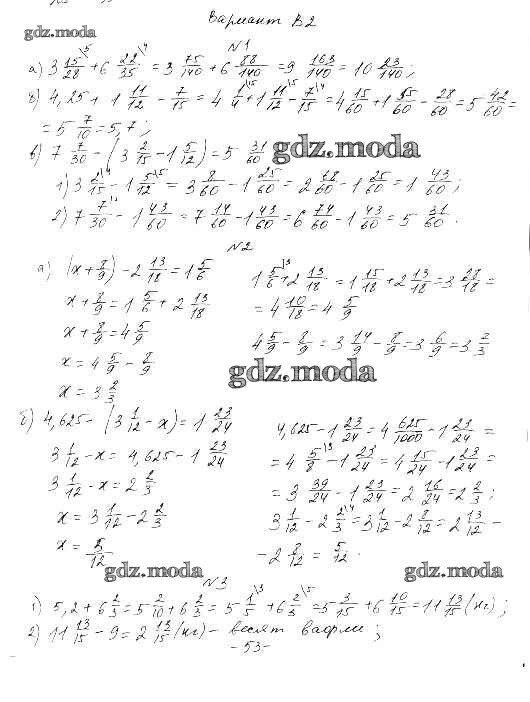 gdz.moda
Вариант В2
N1
а) 3 15/28 \5 + 6 22/35 \4 = 3 75/140 + 6 88/140 = 9 163/140 = 10 23/140;
б) 4,25 + 1 11/12 - 7/15 = 4 1/4 \15 + 1 11/12 \5 - 7/15 \4 = 4 15/60 + 1 55/60 - 28/60 = 5 42/60 =
= 5 7/10 = 5,7;
в) 7 7/30 - (3 2/15 - 1 5/12) = 5 31/60
gdz.moda
1) 3 2/15 \4 - 1 5/12 \5 = 3 8/60 - 1 25/60 = 2 68/60 - 1 25/60 = 1 43/60;
2) 7 7/30 \2 - 1 43/60 = 7 14/60 - 1 43/60 = 6 74/60 - 1 43/60 = 5 31/60.
N2
а) (x + 8/9) - 2 13/18 = 1 5/6
x + 8/9 = 1 5/6 + 2 13/18
x + 8/9 = 4 5/9
x = 4 5/9 - 8/9
x = 3 2/3
1 5/6 \3 + 2 13/18 = 1 15/18 + 2 13/18 = 3 28/18 =
= 4 10/18 = 4 5/9
4 5/9 - 8/9 = 3 14/9 - 8/9 = 3 6/9 = 3 2/3
gdz.moda
б) 4,625 - (3 1/12 - x) = 1 23/24
3 1/12 - x = 4,625 - 1 23/24
3 1/12 - x = 2 2/3
x = 3 1/12 - 2 2/3
x = 5/12
4,625 - 1 23/24 = 4 625/1000 - 1 23/24 =
= 4 5/8 \3 - 1 23/24 = 4 15/24 - 1 23/24 =
= 3 39/24 - 1 23/24 = 2 16/24 = 2 2/3;
3 1/12 - 2 2/3 \4 = 3 1/12 - 2 8/12 = 2 13/12 -
- 2 8/12 = 5/12.
gdz.moda
gdz.moda
N3
1) 5,2 + 6 2/3 = 5 2/10 + 6 2/3 = 5 1/5 \3 + 6 2/3 \5 = 5 3/15 + 6 10/15 = 11 13/15 (кг);
2) 11 13/15 - 9 = 2 13/15 (кг) - весят вафли;
- 53 -